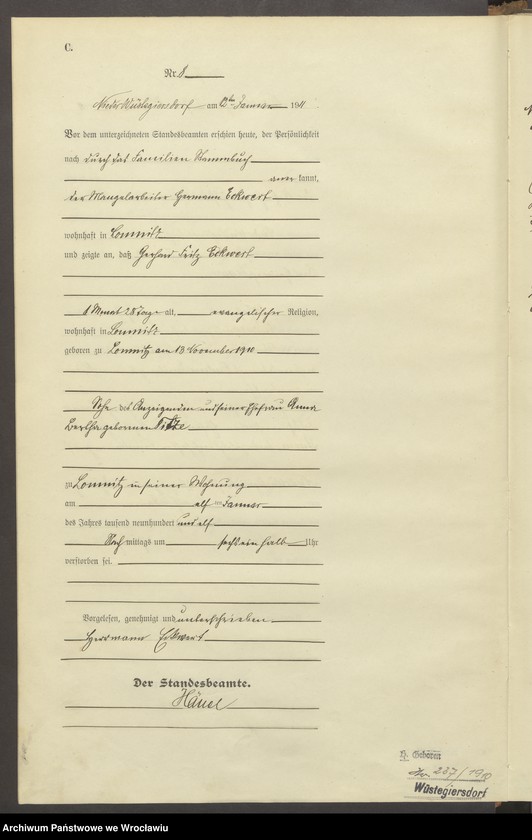 C.
Nr. 8
Nieder Wüstegiersdorf am 12ten Januar 1911
Vor dem unterzeichneten Standesbeamten erschien heute, der Persönlichkeit
nach durch das Familien Stammbuch
anerkannt,
der Mangelarbeiter Hermann Eckwert
wohnhaft in Lomnitz
und zeigte an, daß Gerhard Fritz Eckwert
1 Monat 28 Tage alt, evangelischer Religion,
wohnhaft in Lomnitz
geboren zu Lomnitz am 13 November 1910
Sohn des Anzeigenden und seiner Ehefrau Anna
Bertha geborenen
zu Lomnitz in seiner Wohnung
am elften Januar
des Jahres tausend neunhundert und elf
Nachmittags um sechs ein halb Uhr
verstorben sei.
Vorgelesen, genehmigt und unterschrieben
Herrmann Eckwert
Der Standesbeamte.
Hänel
H. Geboren
Nr. 237/1910
Wüstegiersdorf
Archiwum Państwowe we Wrocławiu